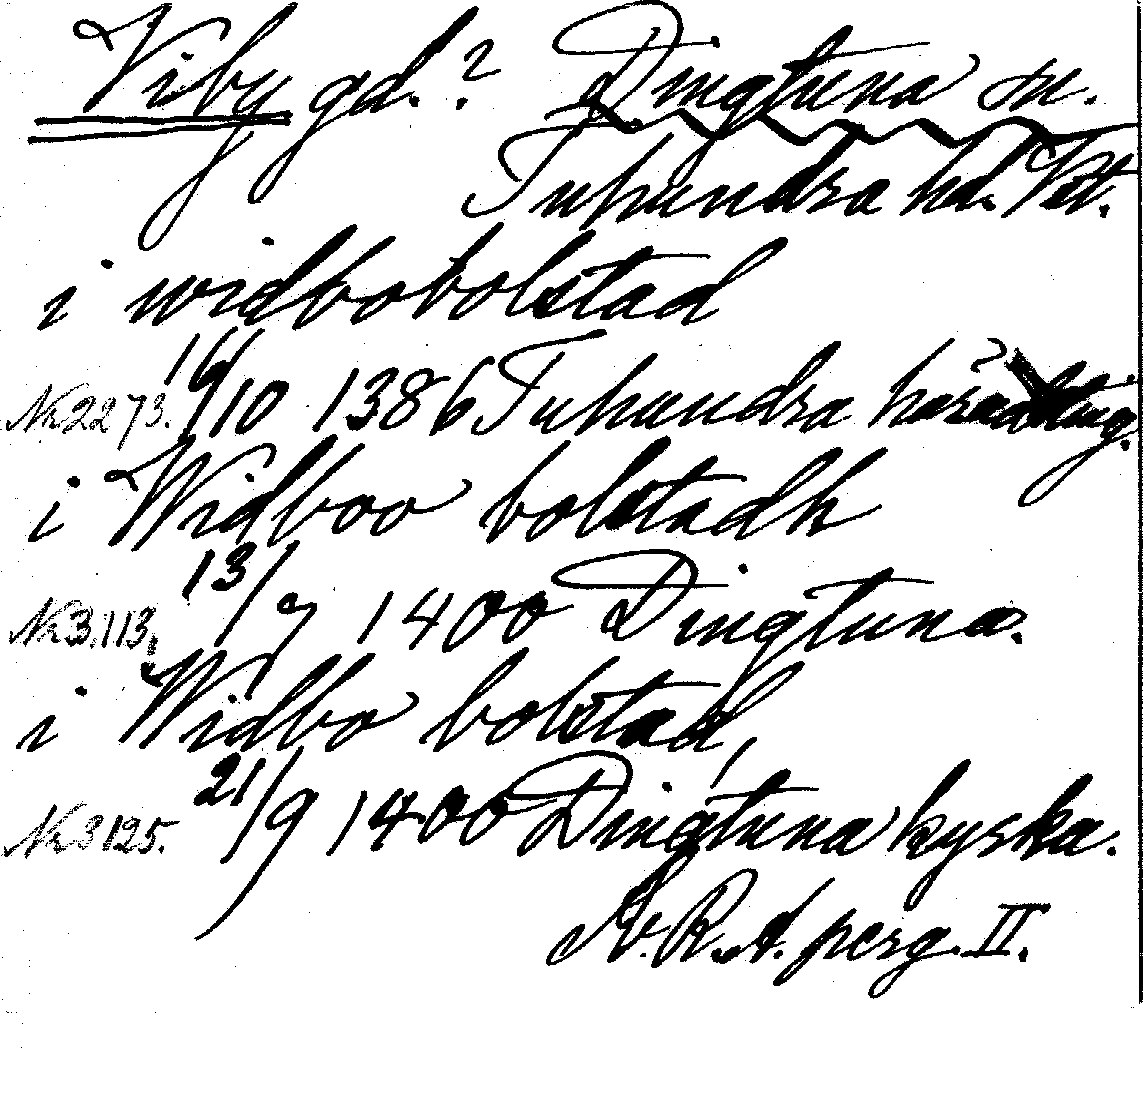 Viby gd.? Dingtuna sn.
Tuhundra hd. Vst.
i widbobolstad
Nr 2273. 16/10 1386 Tuhundra häradsting.
i Widboo bolstadh
Nr 3113. 13/7 1400 Dingtuna.
i Widbo bolstad,
Nr 3125. 21/9 1400 Dingtuna kyrka.
Sv. R. A. perg. II.